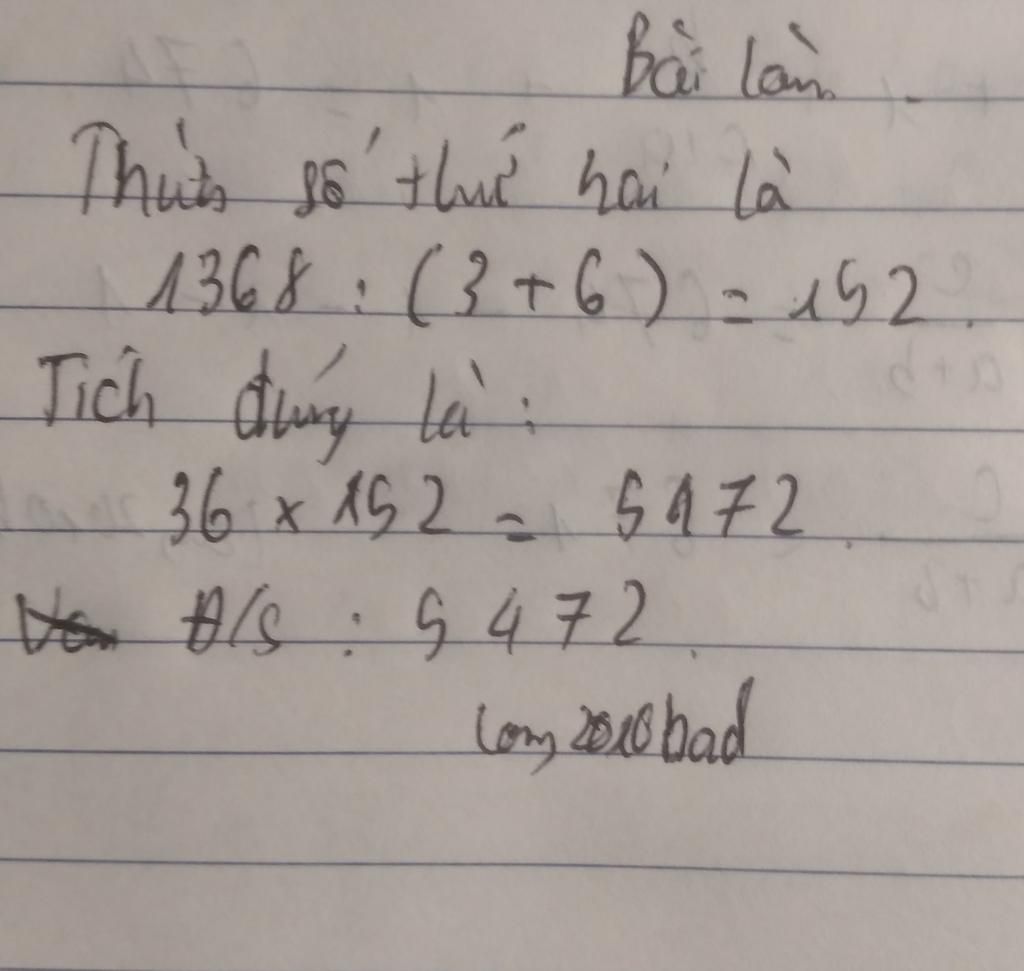 Bài làm
Thừa số thứ hai là
1368 : (3 + 6) = 152.
Tích đúng là :
36 x 152 = 5472.
Đ/S : 5472.
long2010bad